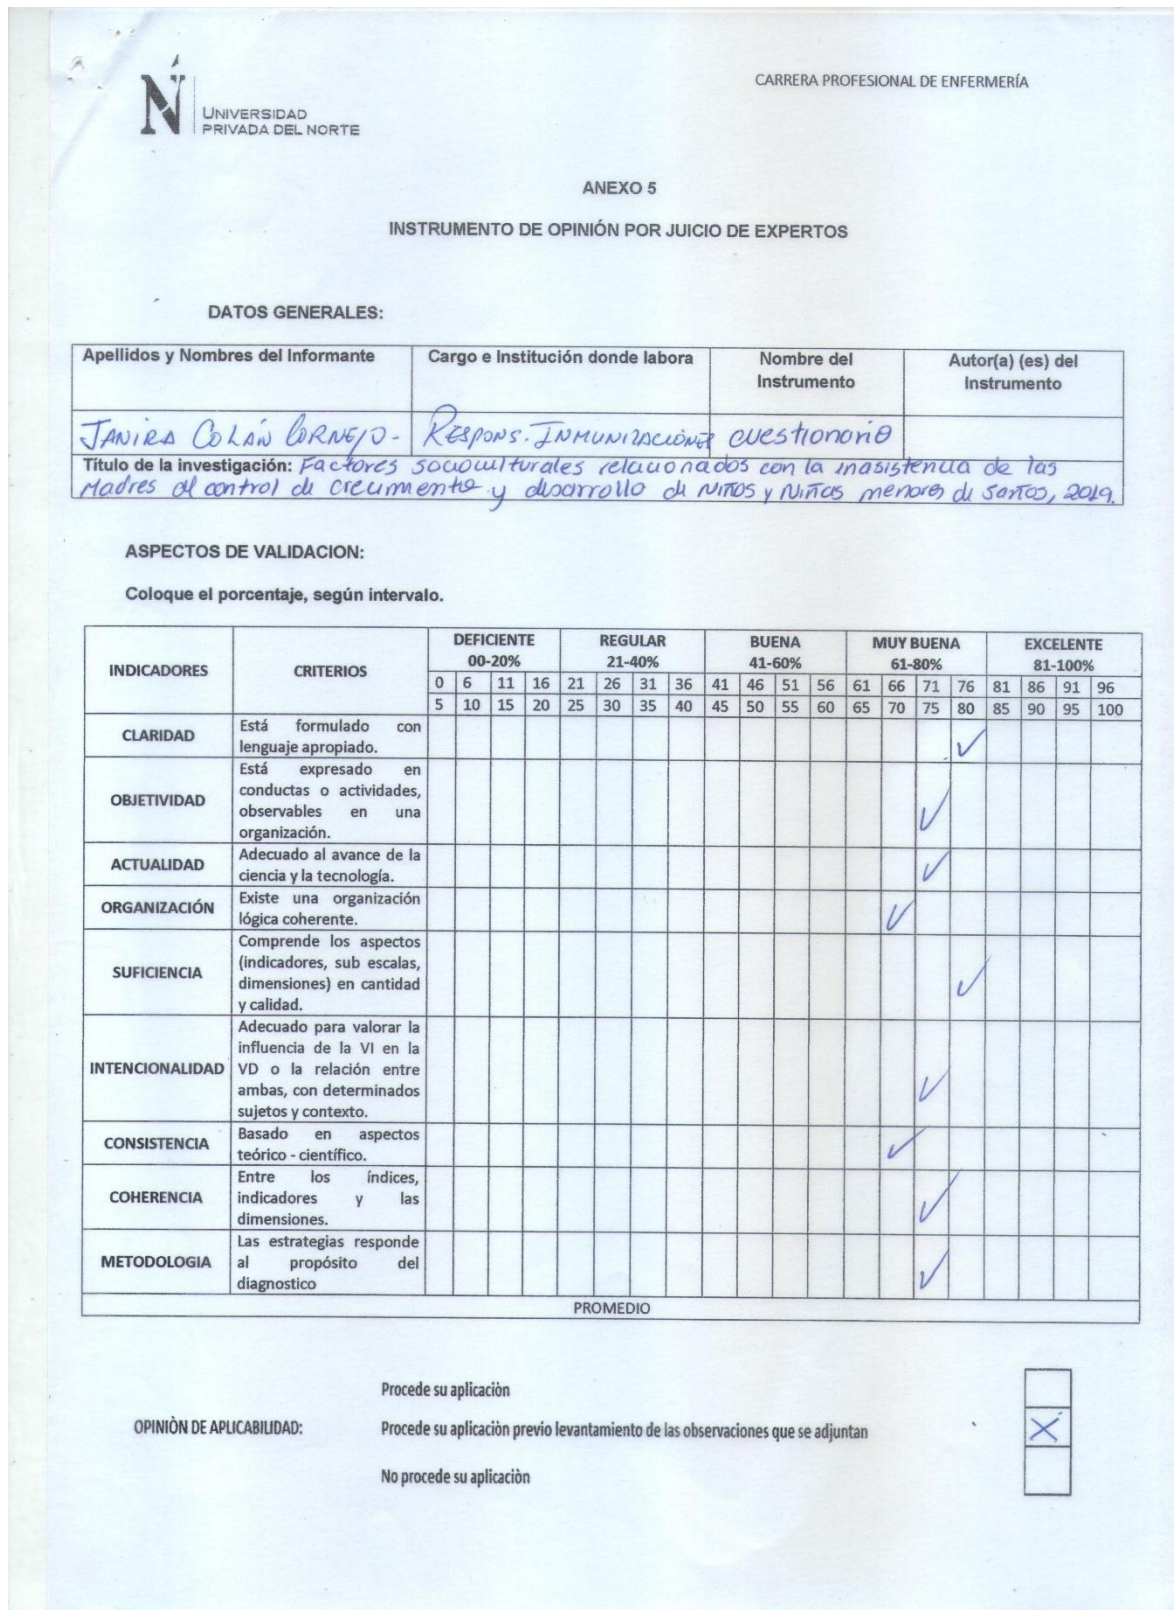 CARRERA PROFESIONAL DE ENFERMERÍA
N
UNIVERSIDAD
PRIVADA DEL NORTE
ANEXO 5
INSTRUMENTO DE OPINIÓN POR JUICIO DE EXPERTOS
DATOS GENERALES:
Apellidos y Nombres del Informante Cargo e Institución donde labora Nombre del Instrumento Autor(a) (es) del Instrumento
JANIRA COLÁN CORNEJO- RESPONS. INMUNIZACIONES cuestionario
Título de la investigación: Factores socioculturales relacionados con la inasistencia de las
Madres al control de crecimiento y desarrollo de Niños y Niñas menores de 5años, 2019.
ASPECTOS DE VALIDACION:
Coloque el porcentaje, según intervalo.
INDICADORES CRITERIOS DEFICIENTE REGULAR BUENA MUY BUENA EXCELENTE
00-20% 21-40% 41-60% 61-80% 81-100%
0 6 11 16 21 26 31 36 41 46 51 56 61 66 71 76 81 86 91 96
5 10 15 20 25 30 35 40 45 50 55 60 65 70 75 80 85 90 95 100
CLARIDAD Está formulado con
lenguaje apropiado.
OBJETIVIDAD Está expresado en
conductas o actividades,
observables en una
organización.
ACTUALIDAD Adecuado al avance de la
ciencia y la tecnología.
ORGANIZACIÓN Existe una organización
lógica coherente.
SUFICIENCIA Comprende los aspectos
(indicadores, sub escalas,
dimensiones) en cantidad
y calidad.
INTENCIONALIDAD Adecuado para valorar la
influencia de la VI en la
VD o la relación entre
ambas, con determinados
sujetos y contexto.
CONSISTENCIA Basado en aspectos
teórico - científico.
COHERENCIA Entre los índices,
indicadores y las
dimensiones.
METODOLOGIA Las estrategias responde
al propósito del
diagnostico
PROMEDIO
Procede su aplicaciòn
OPINIÒN DE APLICABILIDAD: Procede su aplicaciòn previo levantamiento de las observaciones que se adjuntan X
No procede su aplicaciòn